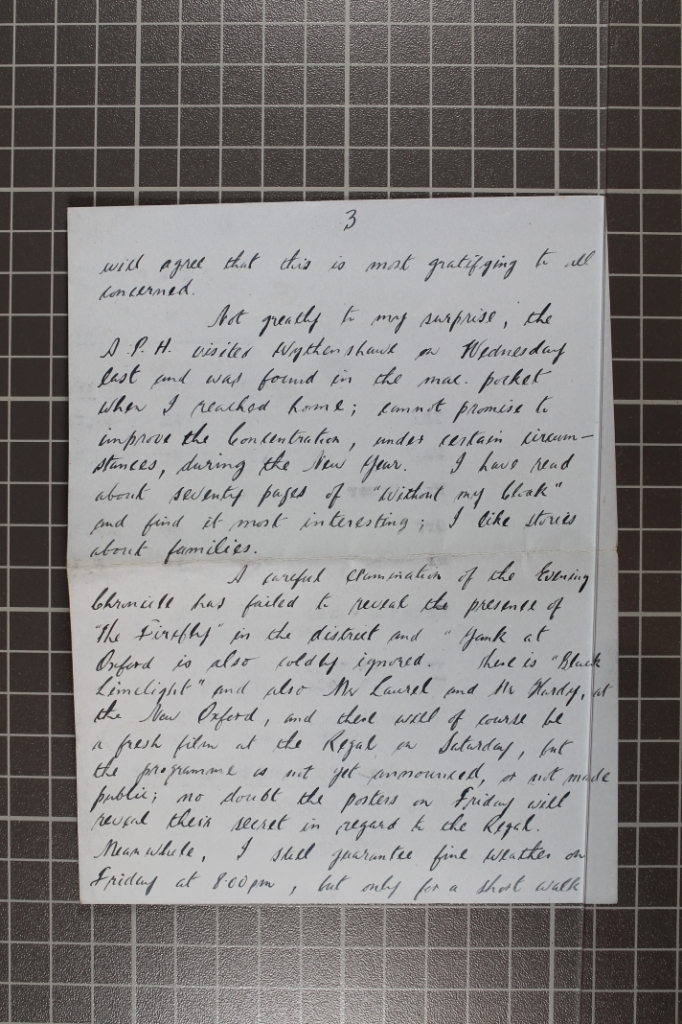 3
will agree that this is most gratifying to all
concerned.
Not greatly to my surprise, the
A.P.H. visited Wythenshawe on Wednesday
last and was found in the mac. pocket
when I reached home; cannot promise to
improve the Concentration, under certain circum-
stances, during the New Year. I have read
about seventy pages of "Without my Cloak"
and find it most interesting; I like stories
about families.
A careful examination of the Evening
Chronicle has failed to reveal the presence of
"The Firefly" in the district and "Yank at
Oxford is also coldly ignored. There is "Black
Limelight" and also Mr Laurel and Mr Hardy, at
the New Oxford, and there will of course be
a fresh film at the Regal on Saturday, but
the programme is not yet announced, or not made
public; no doubt the posters on Friday will
reveal their secret in regard to the Regal.
Meanwhile, I shall guarantee fine weather on
Friday at 8.00pm, but only for a short walk